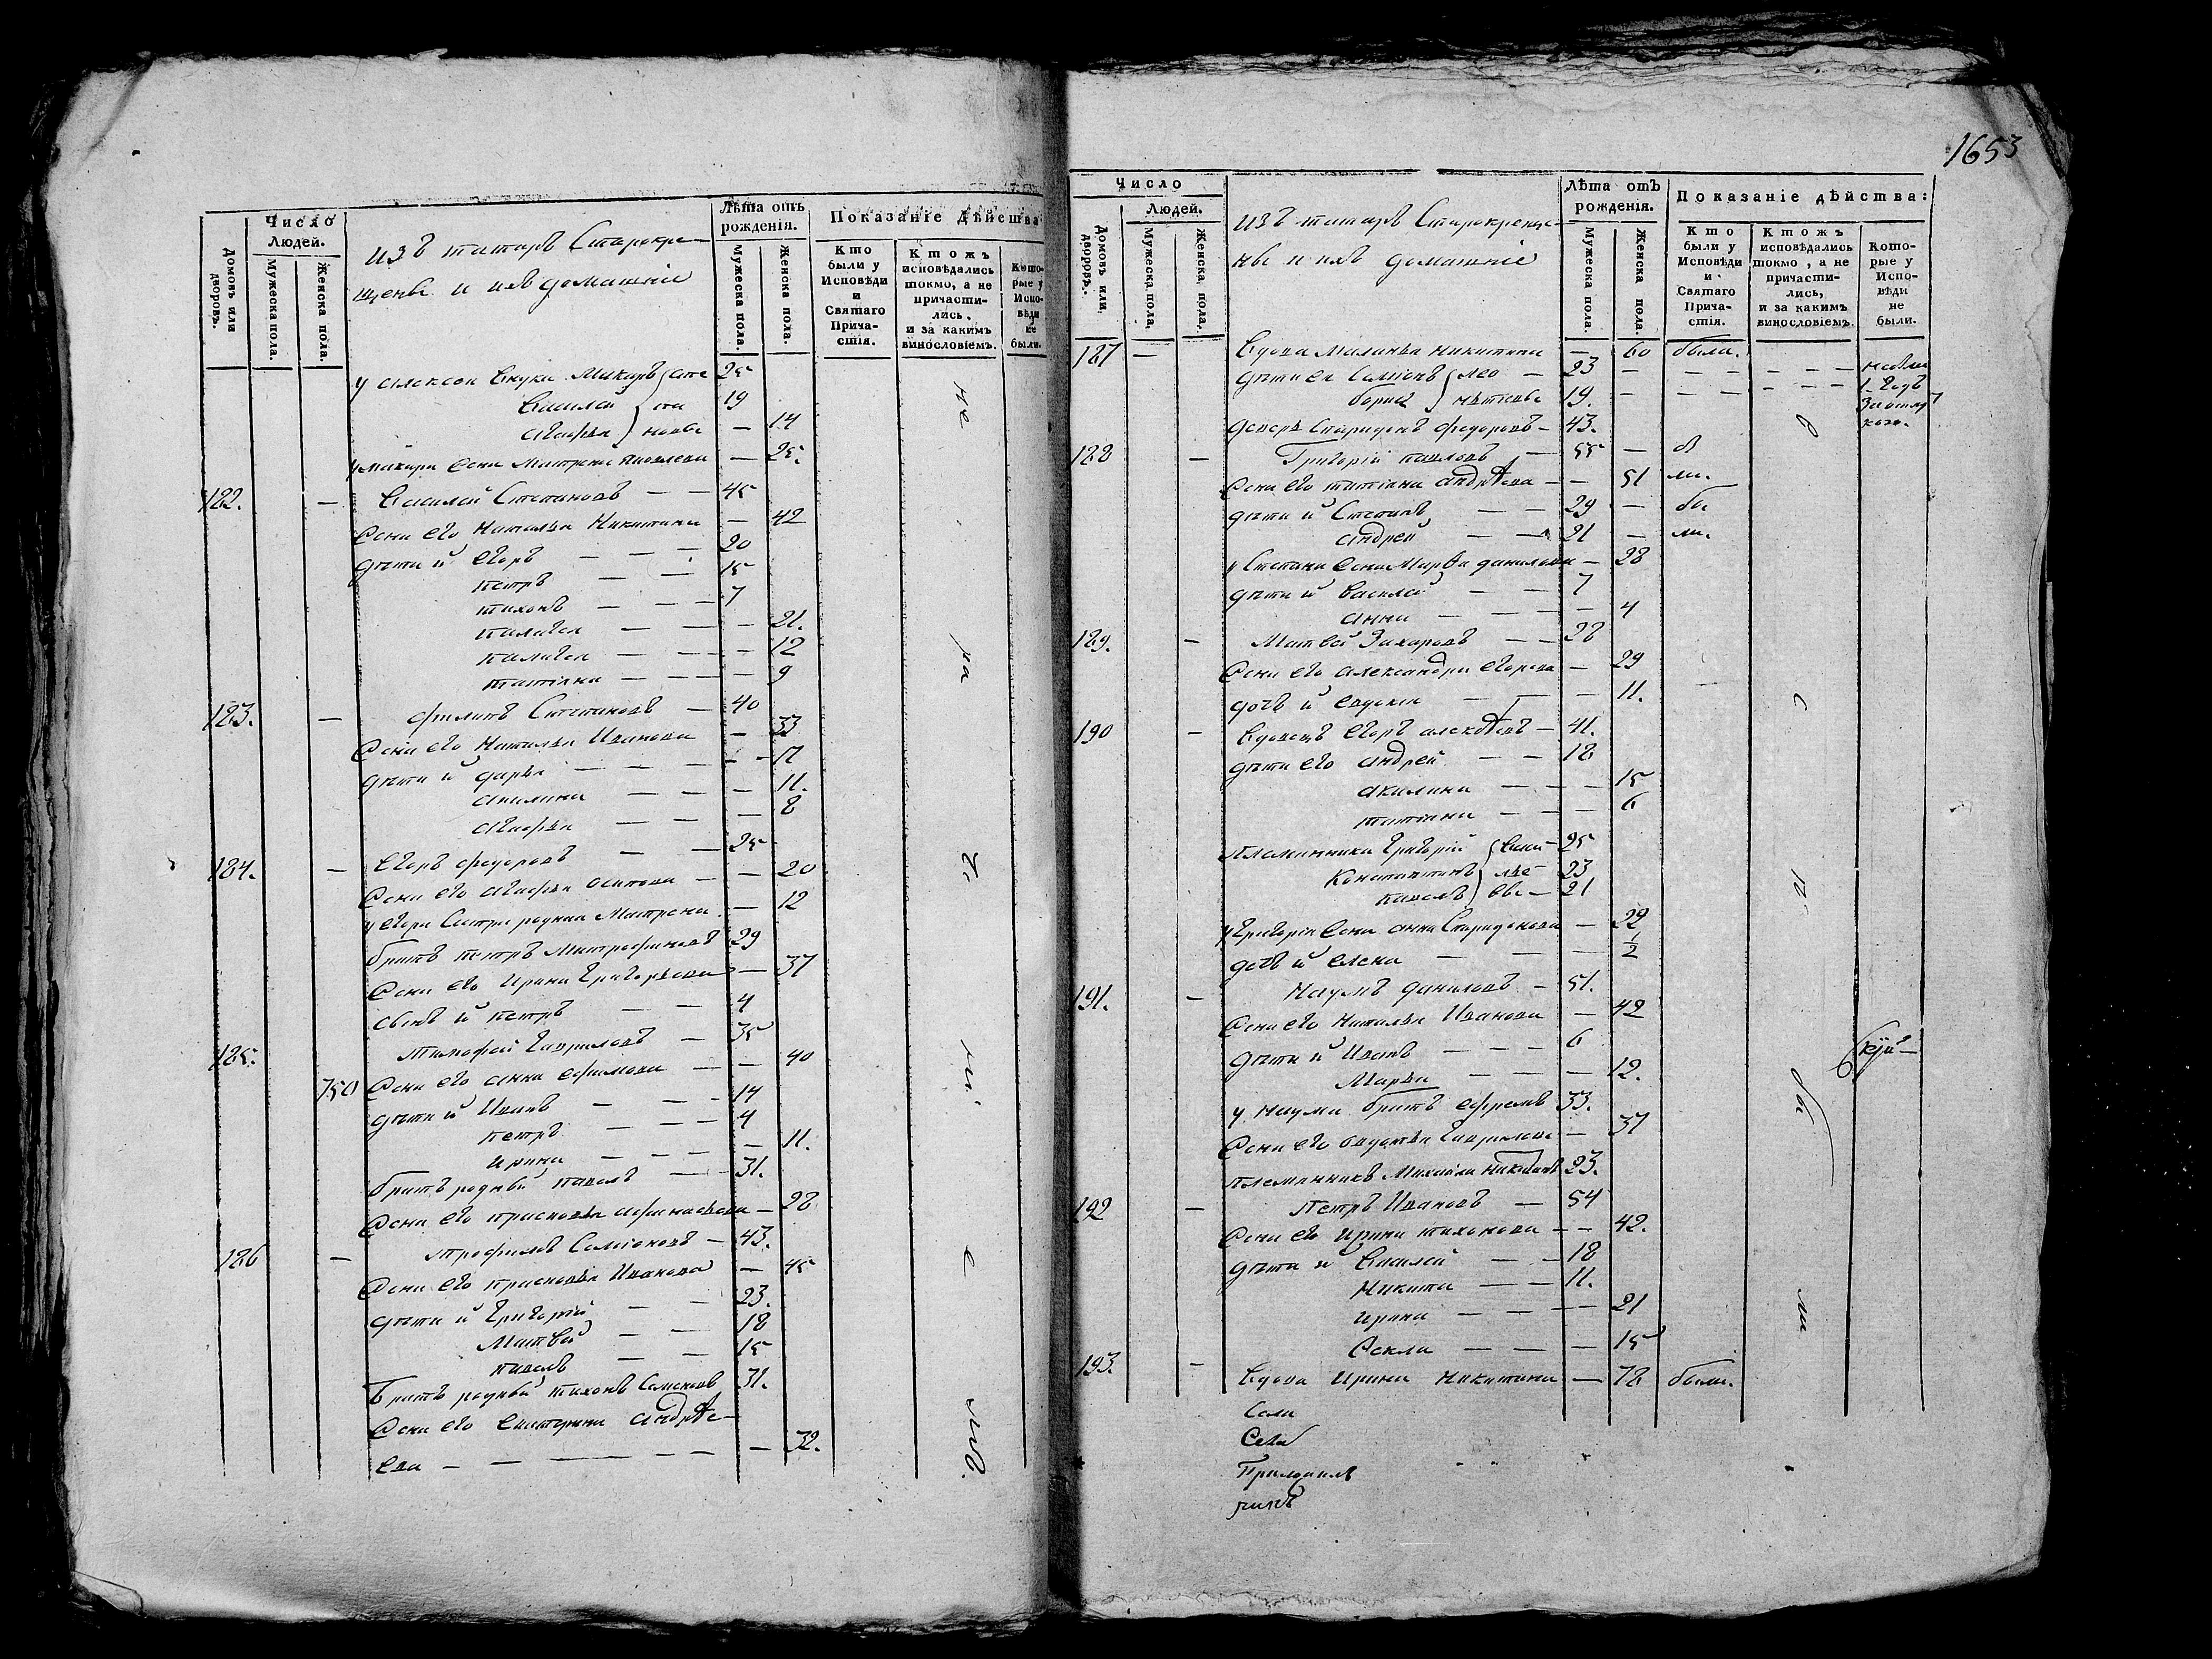 Число
Людей.
Домовъ или дворовъ.
Мужеска пола.
Женска пола.
изъ татаръ Старокре-
щены и ихъ домашніе
Лѣта отъ рожденія.
Мужеска пола.
Женска пола.
Показаніе дѣйства
Кто были у Исповѣди и Святаго Прича-стія.
Ктожъ исповѣдались токмо, а не причасти-лись, и за какимъ винословіемъ.
Кото-рые у Испо-вѣди не были.
у Алексея внуки Макаръ Сте 25
Василей па 19
Агафья новы — 14
у Макара жена Матрена Яковлева — 25.
182. — Василей Степановъ — — 45
Жена его Наталья Никитина — 42
дѣти и́ Егоръ — — — 20
Петръ — — 15
Тихонъ — — — 7
Палагея — — — 21.
Палагея — — — 12
Татіяна — — — 9
183. — Филипъ Степановъ — 40
Жена его Наталья Иванова — 33
дѣти и́ Дарья — — — 17
Акилина — — — 11.
Агафья — — — 8
184. — Егоръ Федоровъ — — 25
Жена его Агафья Осипова — — 20
у Егора Сестра родная Матрена — 12
братъ Петръ Митрофановъ 29
Жена его Ирина Григорьева — 37
сынъ и́ Петръ — — 4
185. — Тимофей Гавриловъ — 35
750 Жена его Анна Ефимова — — 40
дѣти и́ Иванъ — — — 14
Петръ — — — 4
Ирина — — — — 11.
братъ родный Павелъ — — 31.
Жена его Прасковья Афанасьева — 28
186 — Трофимъ Семіоновъ — 43.
Жена его Прасковья Иванова — 45
дѣти и́ Григорій — — 23.
Матвей — — 18
Павелъ — — 15
Братъ родный Тихонъ Семеновъ 31.
Жена его Екатерина Андрѣе-
ева — — — — — — 32.
1653
Число
Людей.
Домовъ или дворовъ.
Мужеска пола,
Женска пола.
изъ татаръ Старокреще-
ны и ихъ домашніе
Лѣта отъ рожденія.
Мужеска пола.
Женска пола.
Показаніе дѣйства:
Кто были у Исповѣди и Святаго Прича-стія.
Ктожъ исповѣдались токмо, а не причасти-лись, и за какимъ винословіемъ.
Кото-рые у Испо-вѣди не были.
187 — Вдова Маланья Никитина — 60 была.
дѣти ея Семіонъ Лео — 23 — — — — —
Борисъ нтьевы 19. — — — — 1. годъ
Деверь Спиридонъ Федоровъ — 43.
188 — Григорій Павловъ — 55 — б
Жена его Татіяна Андрѣева — — 51 ли.
дѣти и́ Степанъ — — 29 — бы
Андрей — — 21 — ли.
у Степана жена Марѳа Данилова — 28
дѣти и́ Василей — — 7
Анна — — — — 4
189. — Матвей Захаровъ — — 28
Жена его Александра Егорова — 29
дочь и́ Евдокия — — — 11.
190 — Вдовецъ Егоръ Алексѣевъ — 41.
дѣти его Андрей — — 18
Акилина — — — 15
Татіяна — — — 6
Племянники Григорій Васи — 25
Константинъ лье — 23
Павелъ вы — 21
у Григорія жена Анна Спиридонова — 22
дочь и́ Елена — — — 1/2
191. — Наумъ Даниловъ — 51.
Жена его Наталья Иванова — 42
дѣти и́ Иванъ — — — 6
Марья — — — 12.
у Наума братъ Ефремъ 33.
Жена его Овдотья Гаврилова — 37
Племянникъ Михайла 23.
192 — Петръ Ивановъ — 54
Жена его Ирина Тихонова — — 42.
дѣти и́ Василей — — 18
Никита — — 11.
Ирина — — — — 21
Ѳекла — — — 15
193. — Вдова Ирина Никитина — 78 была.